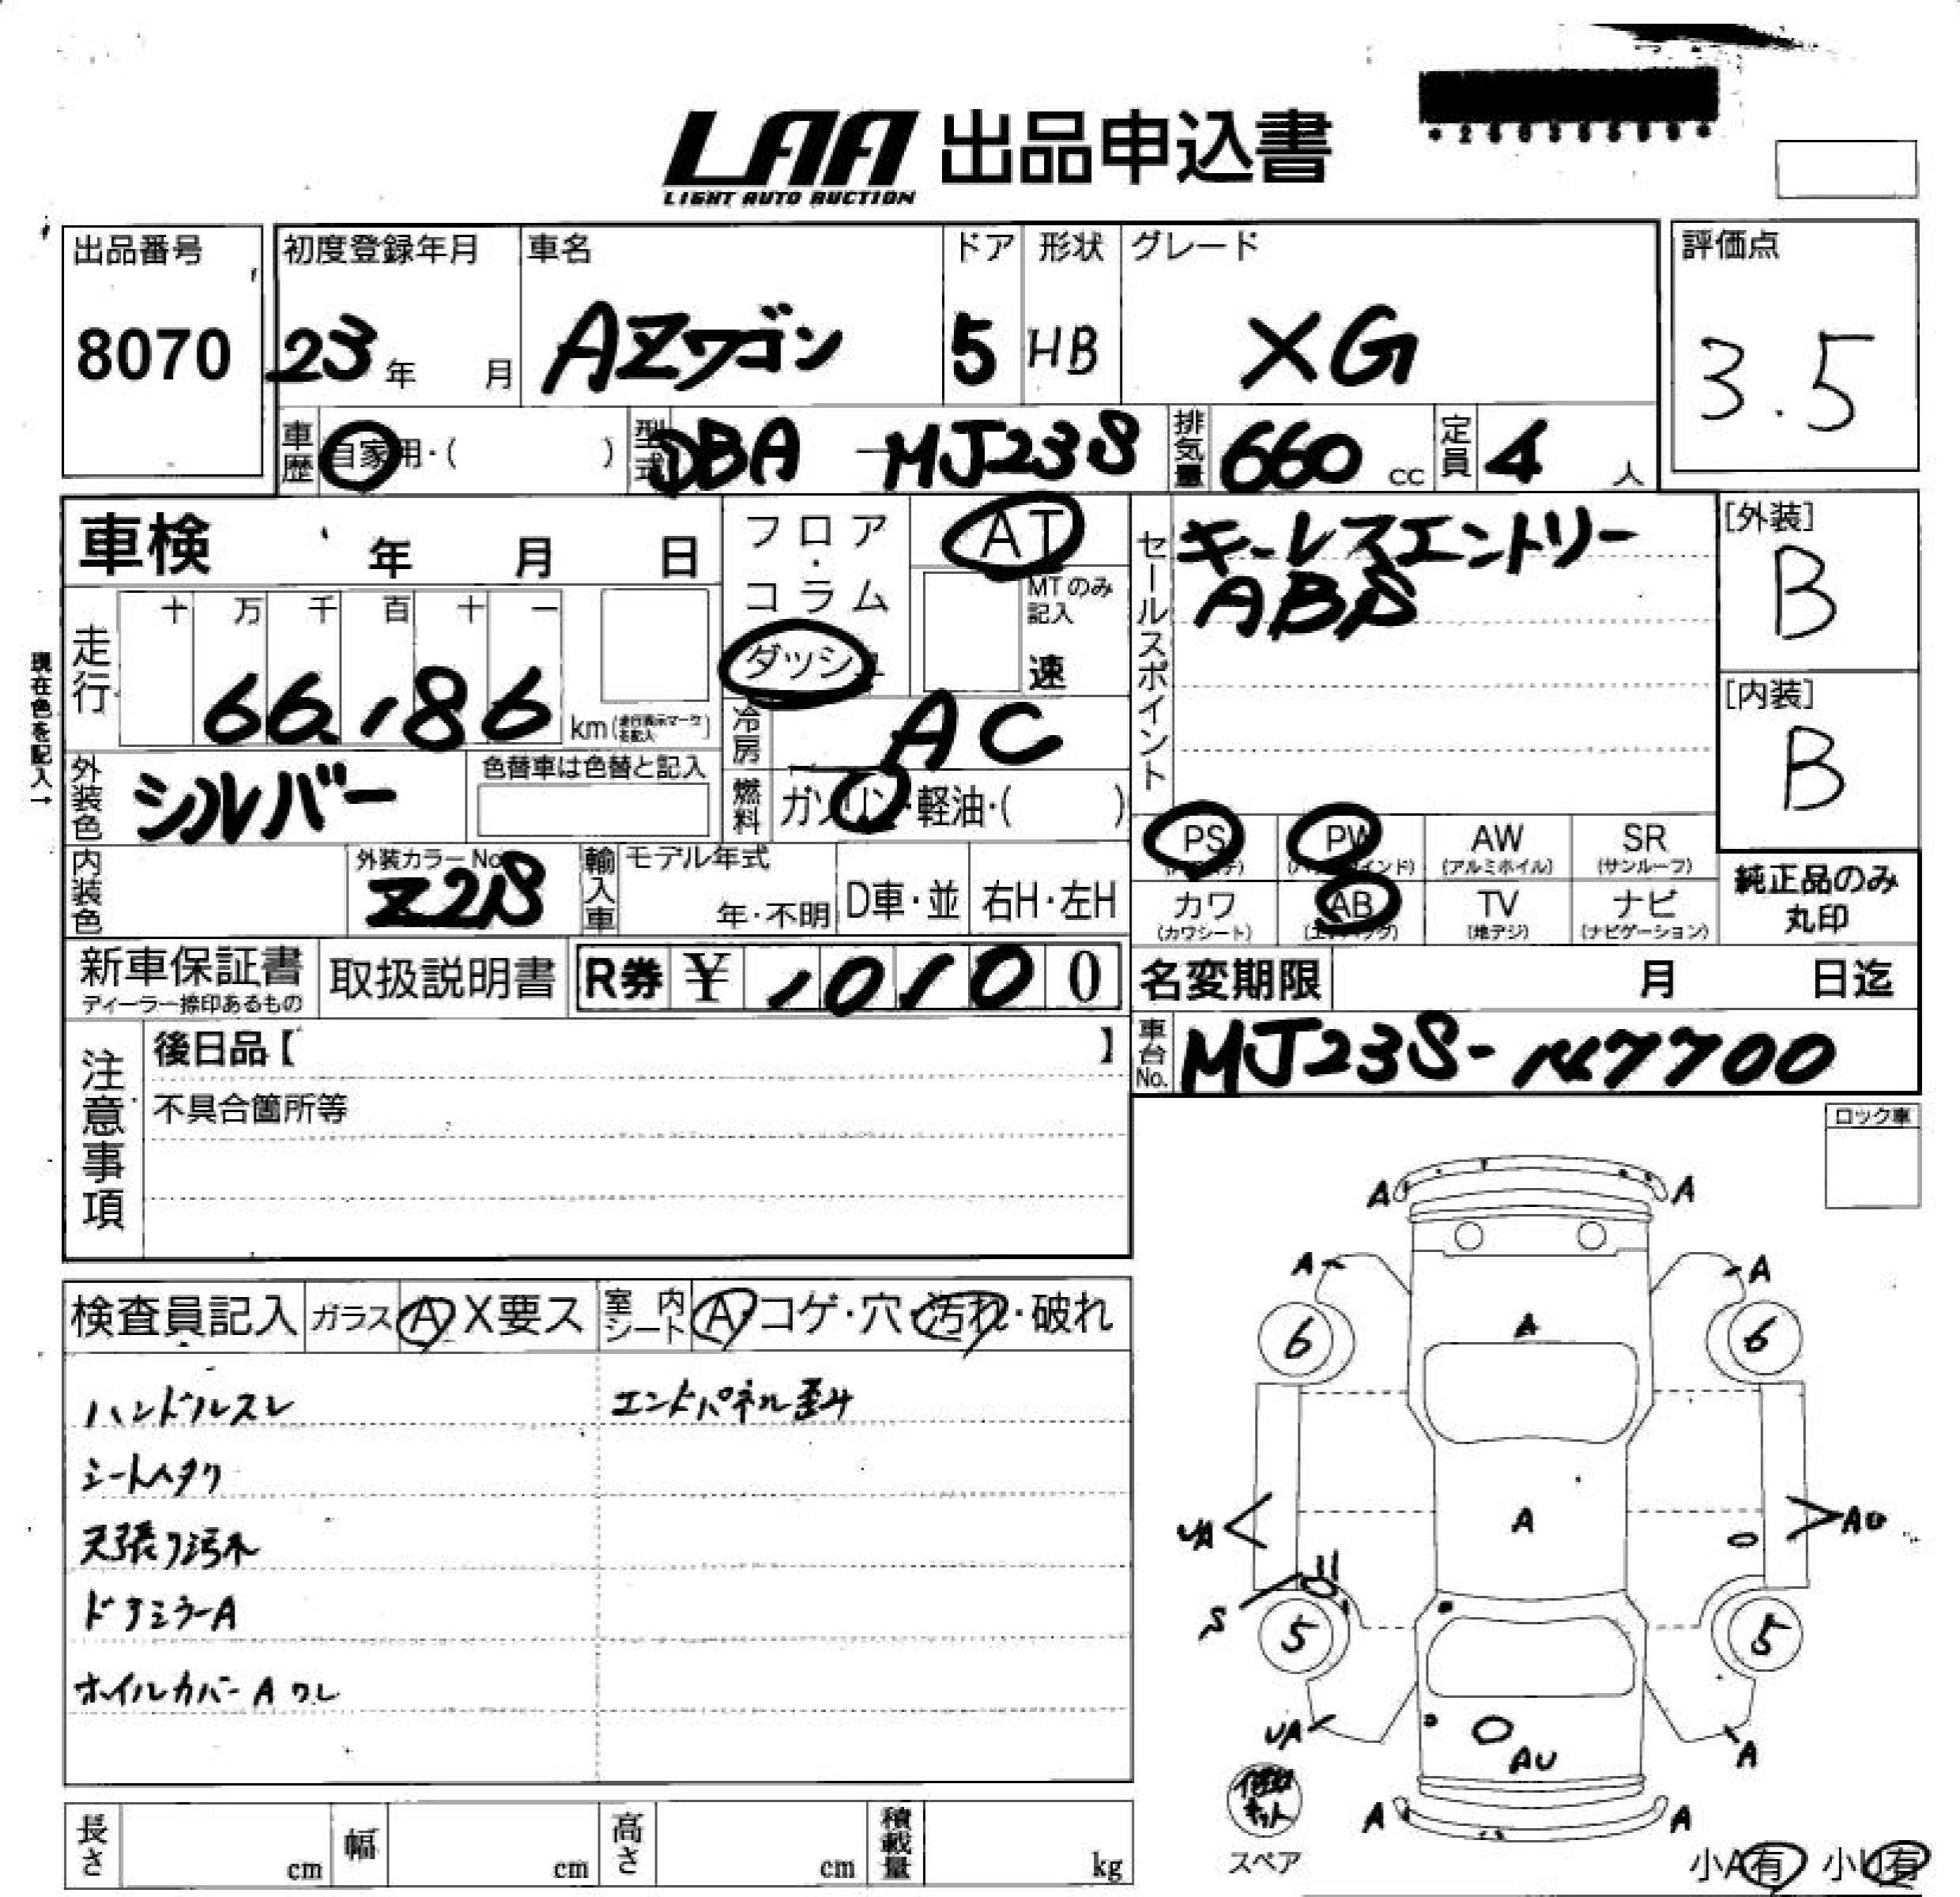 LAA 出品申込書
LIGHT AUTO AUCTION
出品番号 初度登録年月 車名 ドア 形状 グレード 評価点
8070 23年 月 AZワゴン 5 HB XG 3.5
車歴 自家用・( ) 型式 DBA-MJ23S 排気量 660 cc 定員 4 人
車検 年 月 日 フロア・コラム AT セールスポイント キーレスエントリー [外装]
ABS B
十 万 千 百 十 一 MTのみ記入
走行 66,186 km ダッシュ 速 [内装]
現在色を記入→ 冷房 AC B
外装色 シルバー 色替車は色替と記入 燃料 ガソリン・軽油・( )
PS PW AW (アルミホイル) SR (サンルーフ)
内装色 外装カラーNo. Z2S 輸入車 モデル年式 年・不明 D車・並 右H・左H カワ (カワシート) AB TV (地デジ) ナビ (ナビゲーション) 純正品のみ丸印
新車保証書 取扱説明書 R券 ¥ 10100 名変期限 月 日迄
ディーラー捺印あるもの
注意事項 後日品【 】 車台No. MJ23S-
不具合箇所等 ロック車
A A
A A
検査員記入 ガラス A X要ス 室内シート A・コゲ・穴・汚れ・破れ A
6 6
ハンドルスレ エンドパネル歪み
シートヘタリ
天張り汚れ UA A AU
ドアミラーA S 5 5
ホイルカバーAワレ
UA AU A
長さ cm 幅 cm 高さ cm 積載量 kg A A
スペア 小A有 小U有